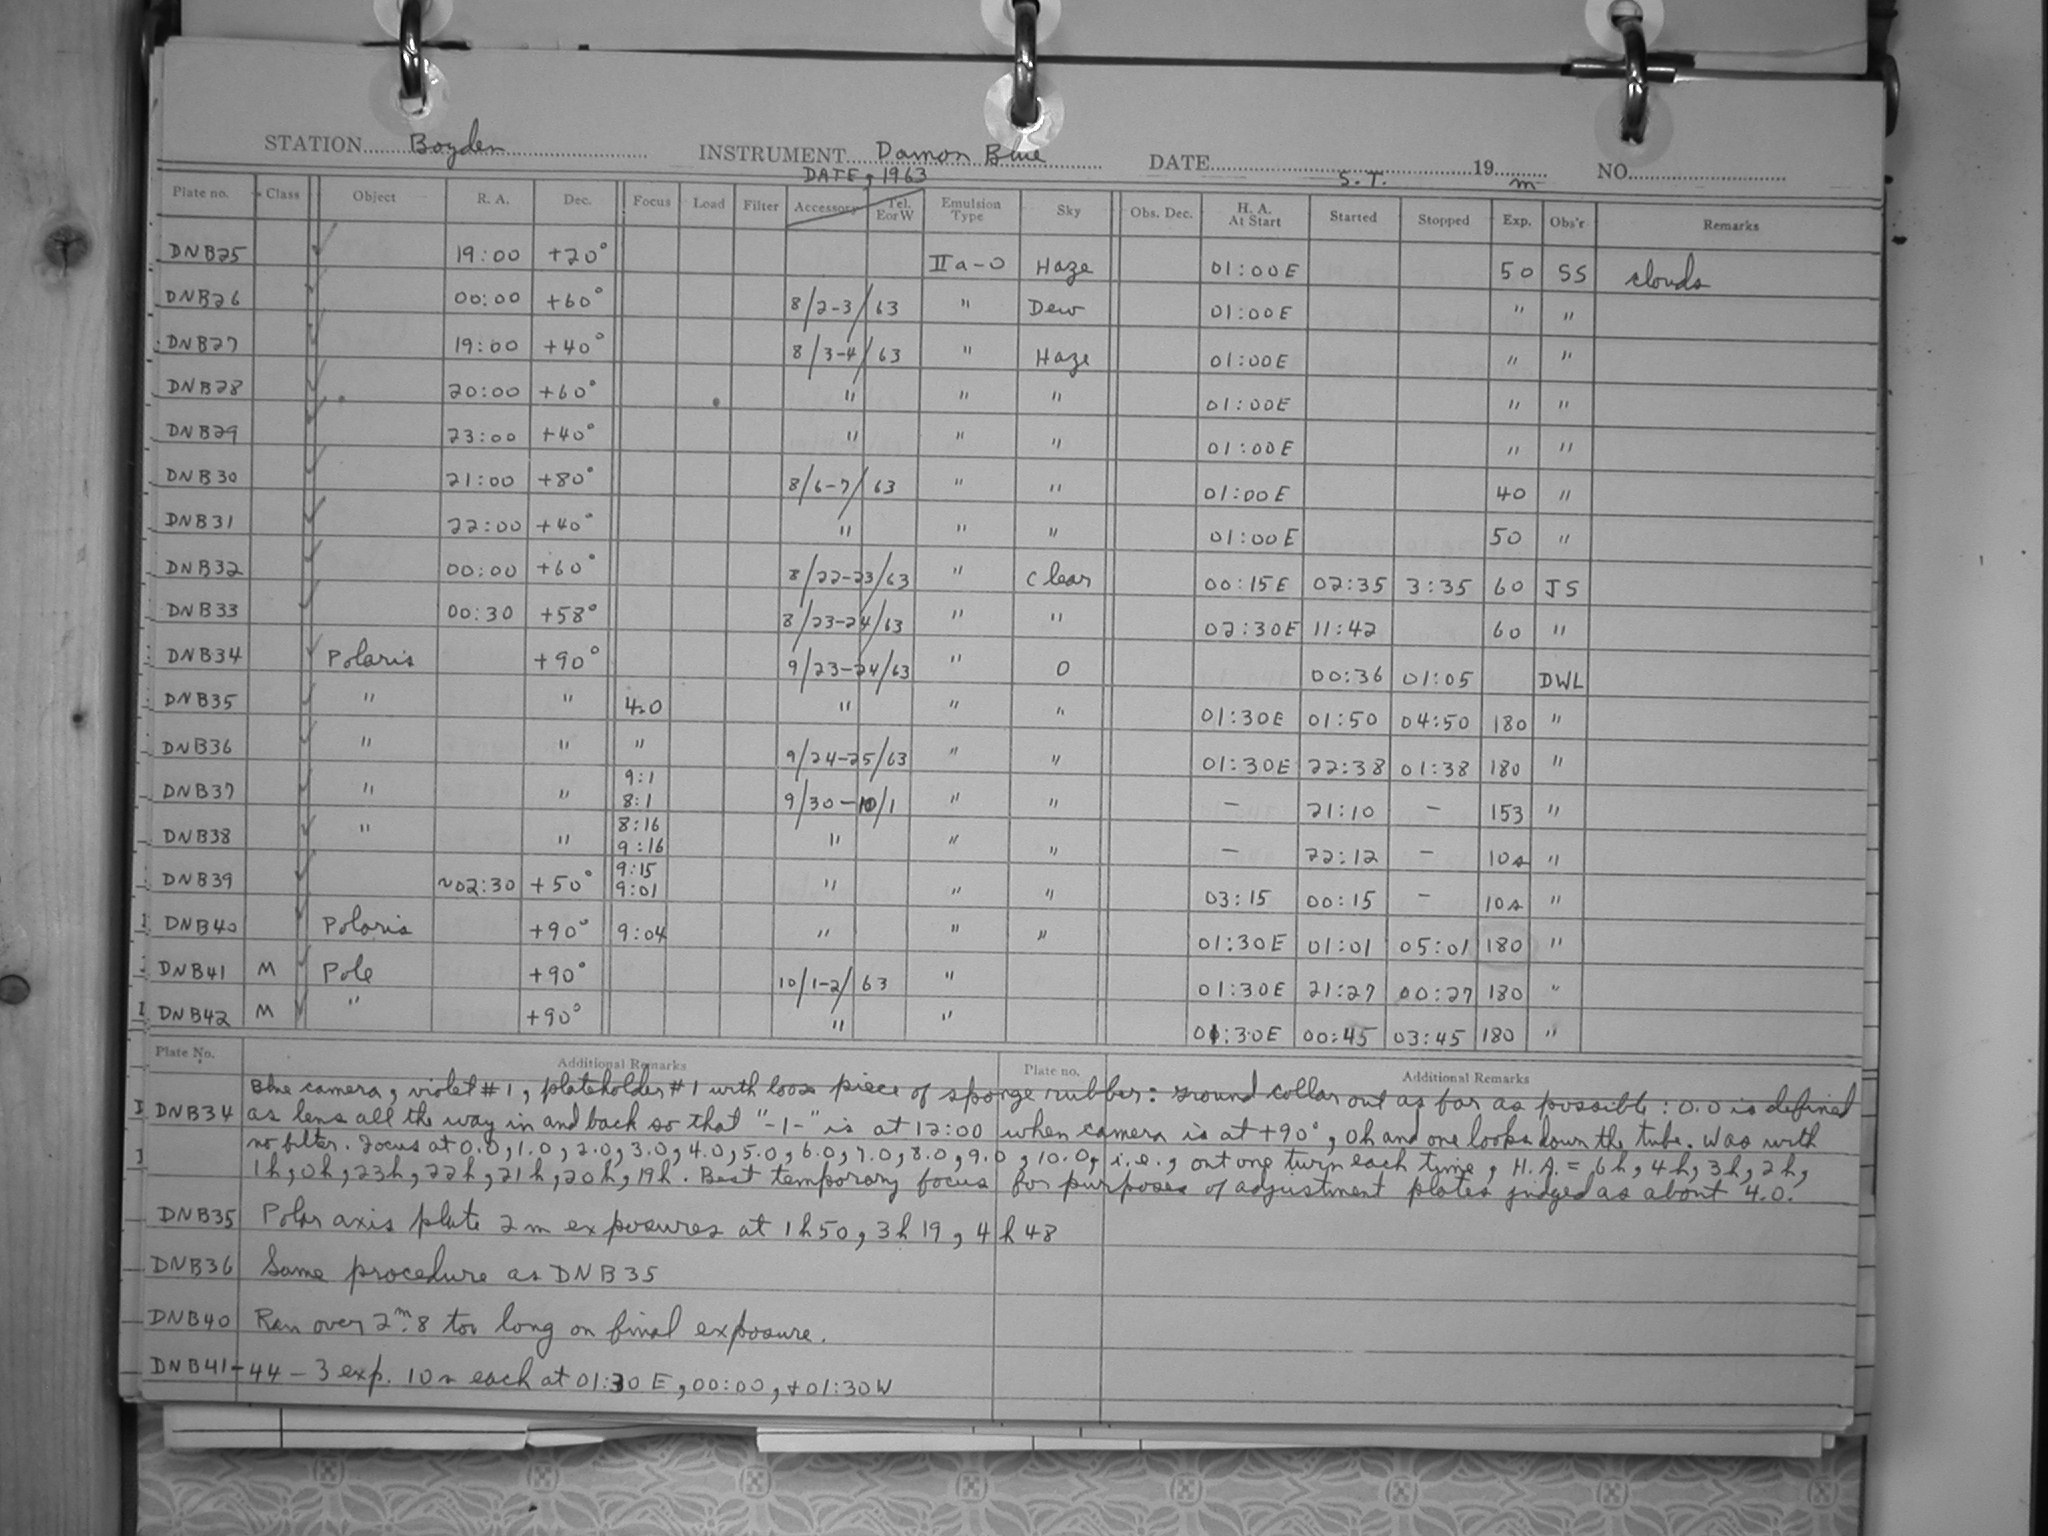 STATION Boyden INSTRUMENT Damon Blue DATE 19 NO.
DATE, 1963 S.T. m
Plate no. Class Object R. A. Dec. Focus Load Filter Accessory Tel. E or W Emulsion Type Sky Obs. Dec. H. A. At Start Started Stopped Exp. Obs'r Remarks
DNB25 19:00 +20° IIa-O Haze 01:00E 50 SS clouds
DNB26 00:00 +60° 8/2-3/63 " Dew 01:00E " "
DNB27 19:00 +40° 8/3-4/63 " Haze 01:00E " "
DNB28 20:00 +60° " " " 01:00E " "
DNB29 23:00 +40° " " " 01:00E " "
DNB30 21:00 +80° 8/6-7/63 " " 01:00E 40 "
DNB31 22:00 +40° " " " 01:00E 50 "
DNB32 00:00 +60° 8/22-23/63 " Clear 00:15E 02:35 3:35 60 JS
DNB33 00:30 +58° 8/23-24/63 " " 02:30E 11:42 60 "
DNB34 Polaris +90° 9/23-24/63 " 0 00:36 01:05 DWL
DNB35 " " 4.0 " " " 01:30E 01:50 04:50 180 "
DNB36 " " " 9/24-25/63 " " 01:30E 22:38 01:38 180 "
DNB37 " " 9:1 8:1 9/30-10/1 " " - 21:10 - 153 "
DNB38 " " 8:16 9:16 " " " - 22:12 - 10s "
DNB39 ~02:30 +50° 9:15 9:01 " " " 03:15 00:15 - 10s "
DNB40 Polaris +90° 9:04 " " " 01:30E 01:01 05:01 180 "
DNB41 M Pole +90° 10/1-2/63 " 01:30E 21:27 00:27 180 "
DNB42 M " +90° " " 01:30E 00:45 03:45 180 "
Plate No. Additional Remarks Plate no. Additional Remarks
DNB34 Blue camera, violet #1, plateholder #1 with loose piece of sponge rubber: ground collar out as far as possible: 0.0 is defined
as lens all the way in and back so that "-1-" is at 12:00 when camera is at +90°, 0h and one looks down the tube. Was with
no filter. Focus at 0.0, 1.0, 2.0, 3.0, 4.0, 5.0, 6.0, 7.0, 8.0, 9.0, 10.0, i.e., out one turn each time, H.A. = 6h, 4h, 3h, 2h,
1h, 0h, 23h, 22h, 21h, 20h, 19h. Best temporary focus for purposes of adjustment plates judged as about 4.0.
DNB35 Polar axis plate 2m exposures at 1h50, 3h19, 4h48
DNB36 Same procedure as DNB35
DNB40 Ran over 2m.8 too long on final exposure.
DNB41-44 - 3 exp. 10s each at 01:30E, 00:00, + 01:30W